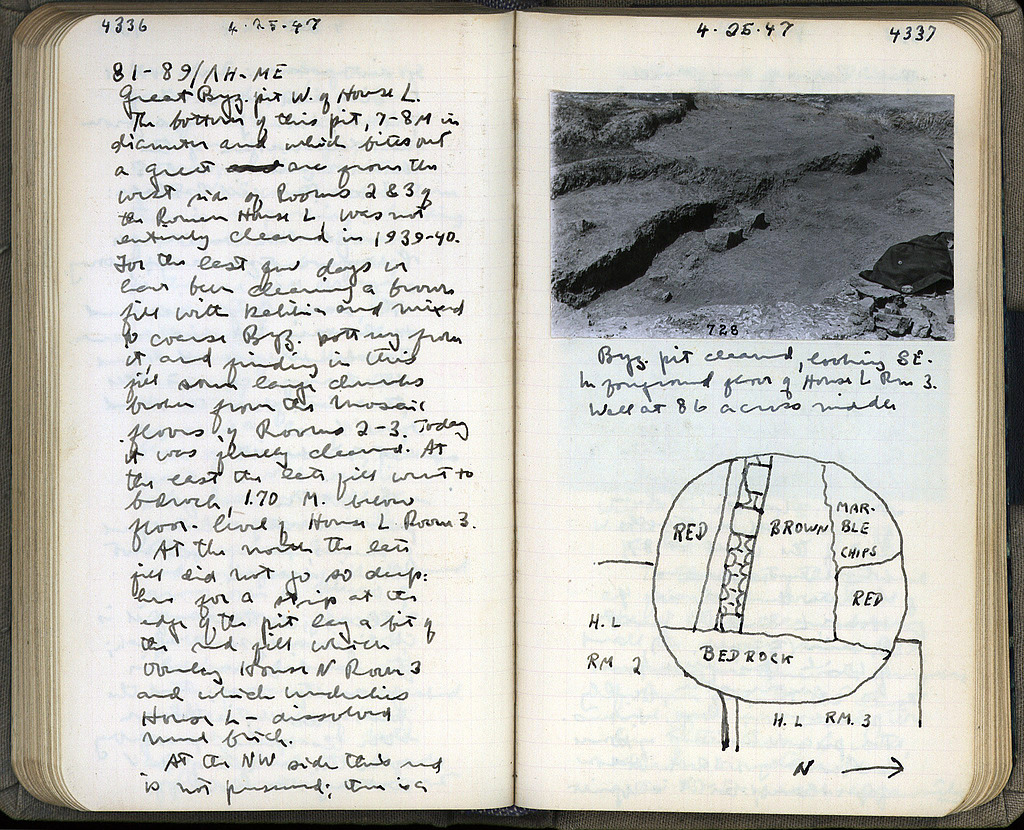 4336
4.25.47
81-89/ΛH-ME
Great Byz. pit W. of House L.
The bottom of this pit, 7-8 M in
diameter and which bites out
a great arc from the
west side of Rooms 2 & 3 of
the Roman House L was not
entirely cleared in 1939-40.
For the last few days we
have been cleaning a brown
fill with and mixed
coarse Byz. pottery from
it, and finding in this
fill some large chunks
broken from the mosaic
floors of Rooms 2-3. Today
it was finally cleared. At
the east the late fill went to
bedrock, 1.70 M. below
floor-level of House L Room 3.
At the north the late
fill did not go so deep:
here for a strip at the
edge of the pit lay a bit of
the red fill which
overlay House N Room 3
and which underlies
House L - dissolved
mud brick.
At the NW side this red
is not preserved; there is a
4.25.47
4337
728
Byz. pit cleared, looking SE.
In foreground floor of House L Rm 3.
Wall at 86 across middle
RED
BROWN
MAR-
BLE
CHIPS
RED
H. L
RM 2
BEDROCK
H. L RM. 3
N